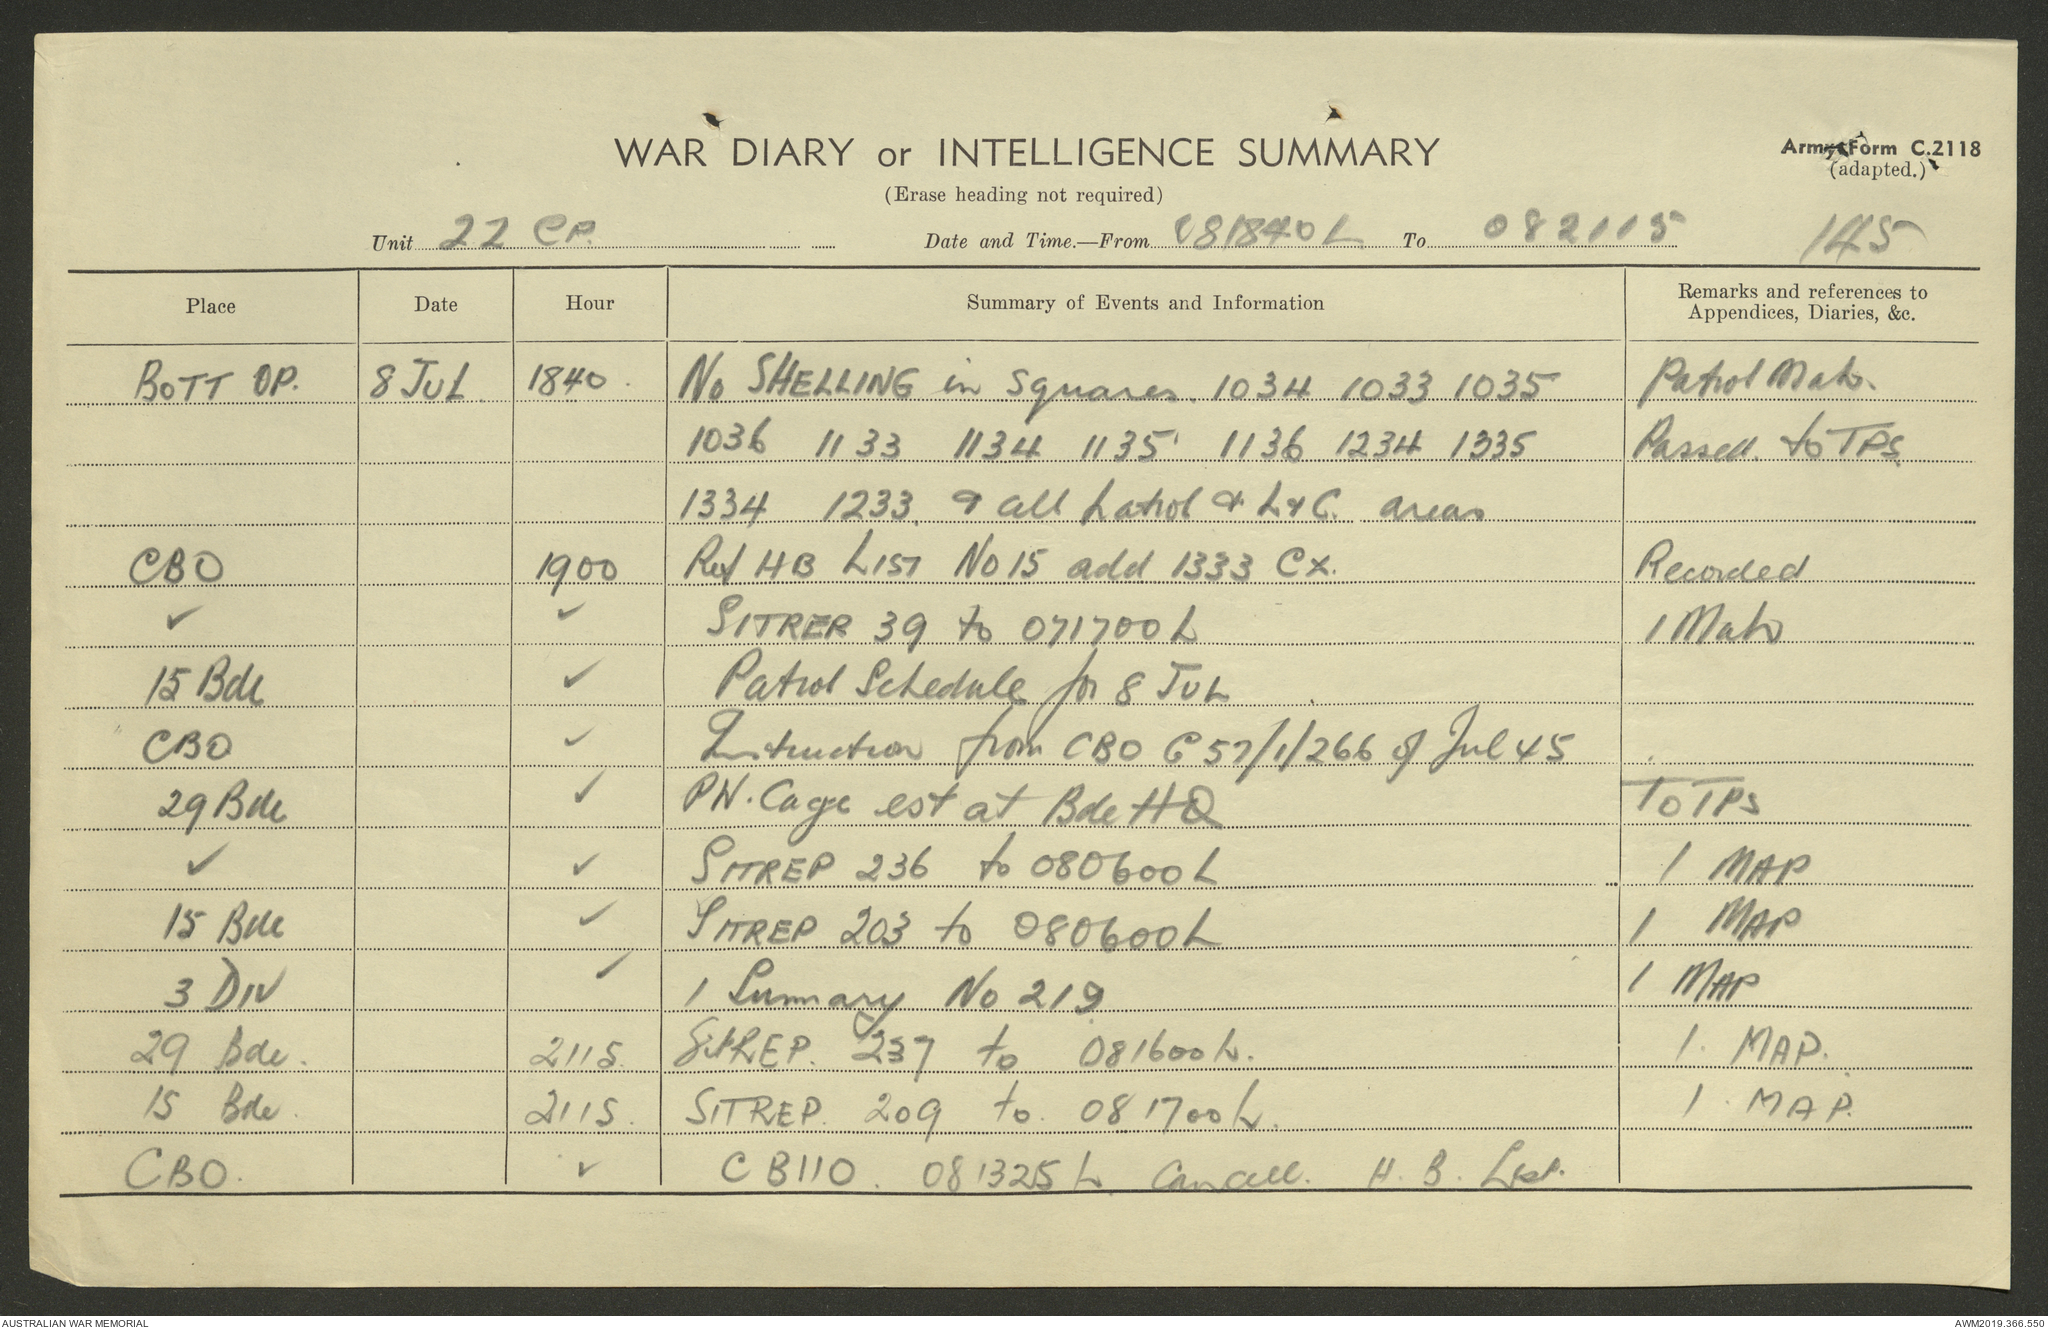 WAR DIARY or INTELLIGENCE SUMMARY
Army Form C.2118
(adapted.)
(Erase heading not required)
Unit 22 CP. Date and Time.—From 081840L To 082115 145
Place Date Hour Summary of Events and Information Remarks and references to
Appendices, Diaries, &c.
BOTT OP. 8 JUL 1840. No SHELLING in squares. 1034 1033 1035 Patrol
1036 1133 1134 1135 1136 1234 1335 Passed to TPS.
1334 1233. & all patrol & areas
CBO 1900 Ref HB LIST No 15 add 1333 Cx. Recorded
✓ ✓ SITREP 39 to 071700L 1
15 Bde ✓ Patrol Schedule for 8 JUL
CBO ✓ Instruction from CBO G57/1/266 of Jul 45
29 Bde ✓ PW. Cage est at Bde HQ To TPS
✓ ✓ SITREP 236 to 080600L 1 MAP
15 Bde ✓ SITREP 203 to 080600L 1 MAP
3 DIV ✓ 1 Summary No 219. 1 MAP
29 Bde. 2115. SitREP. 237 to 081600L. 1. MAP.
15 Bde. 2115. SITREP. 209 to. 081700L. 1. MAP.
CBO. ✓ CB110. 081325L. H. B. List.
AUSTRALIAN WAR MEMORIAL
AWM2019.366.550